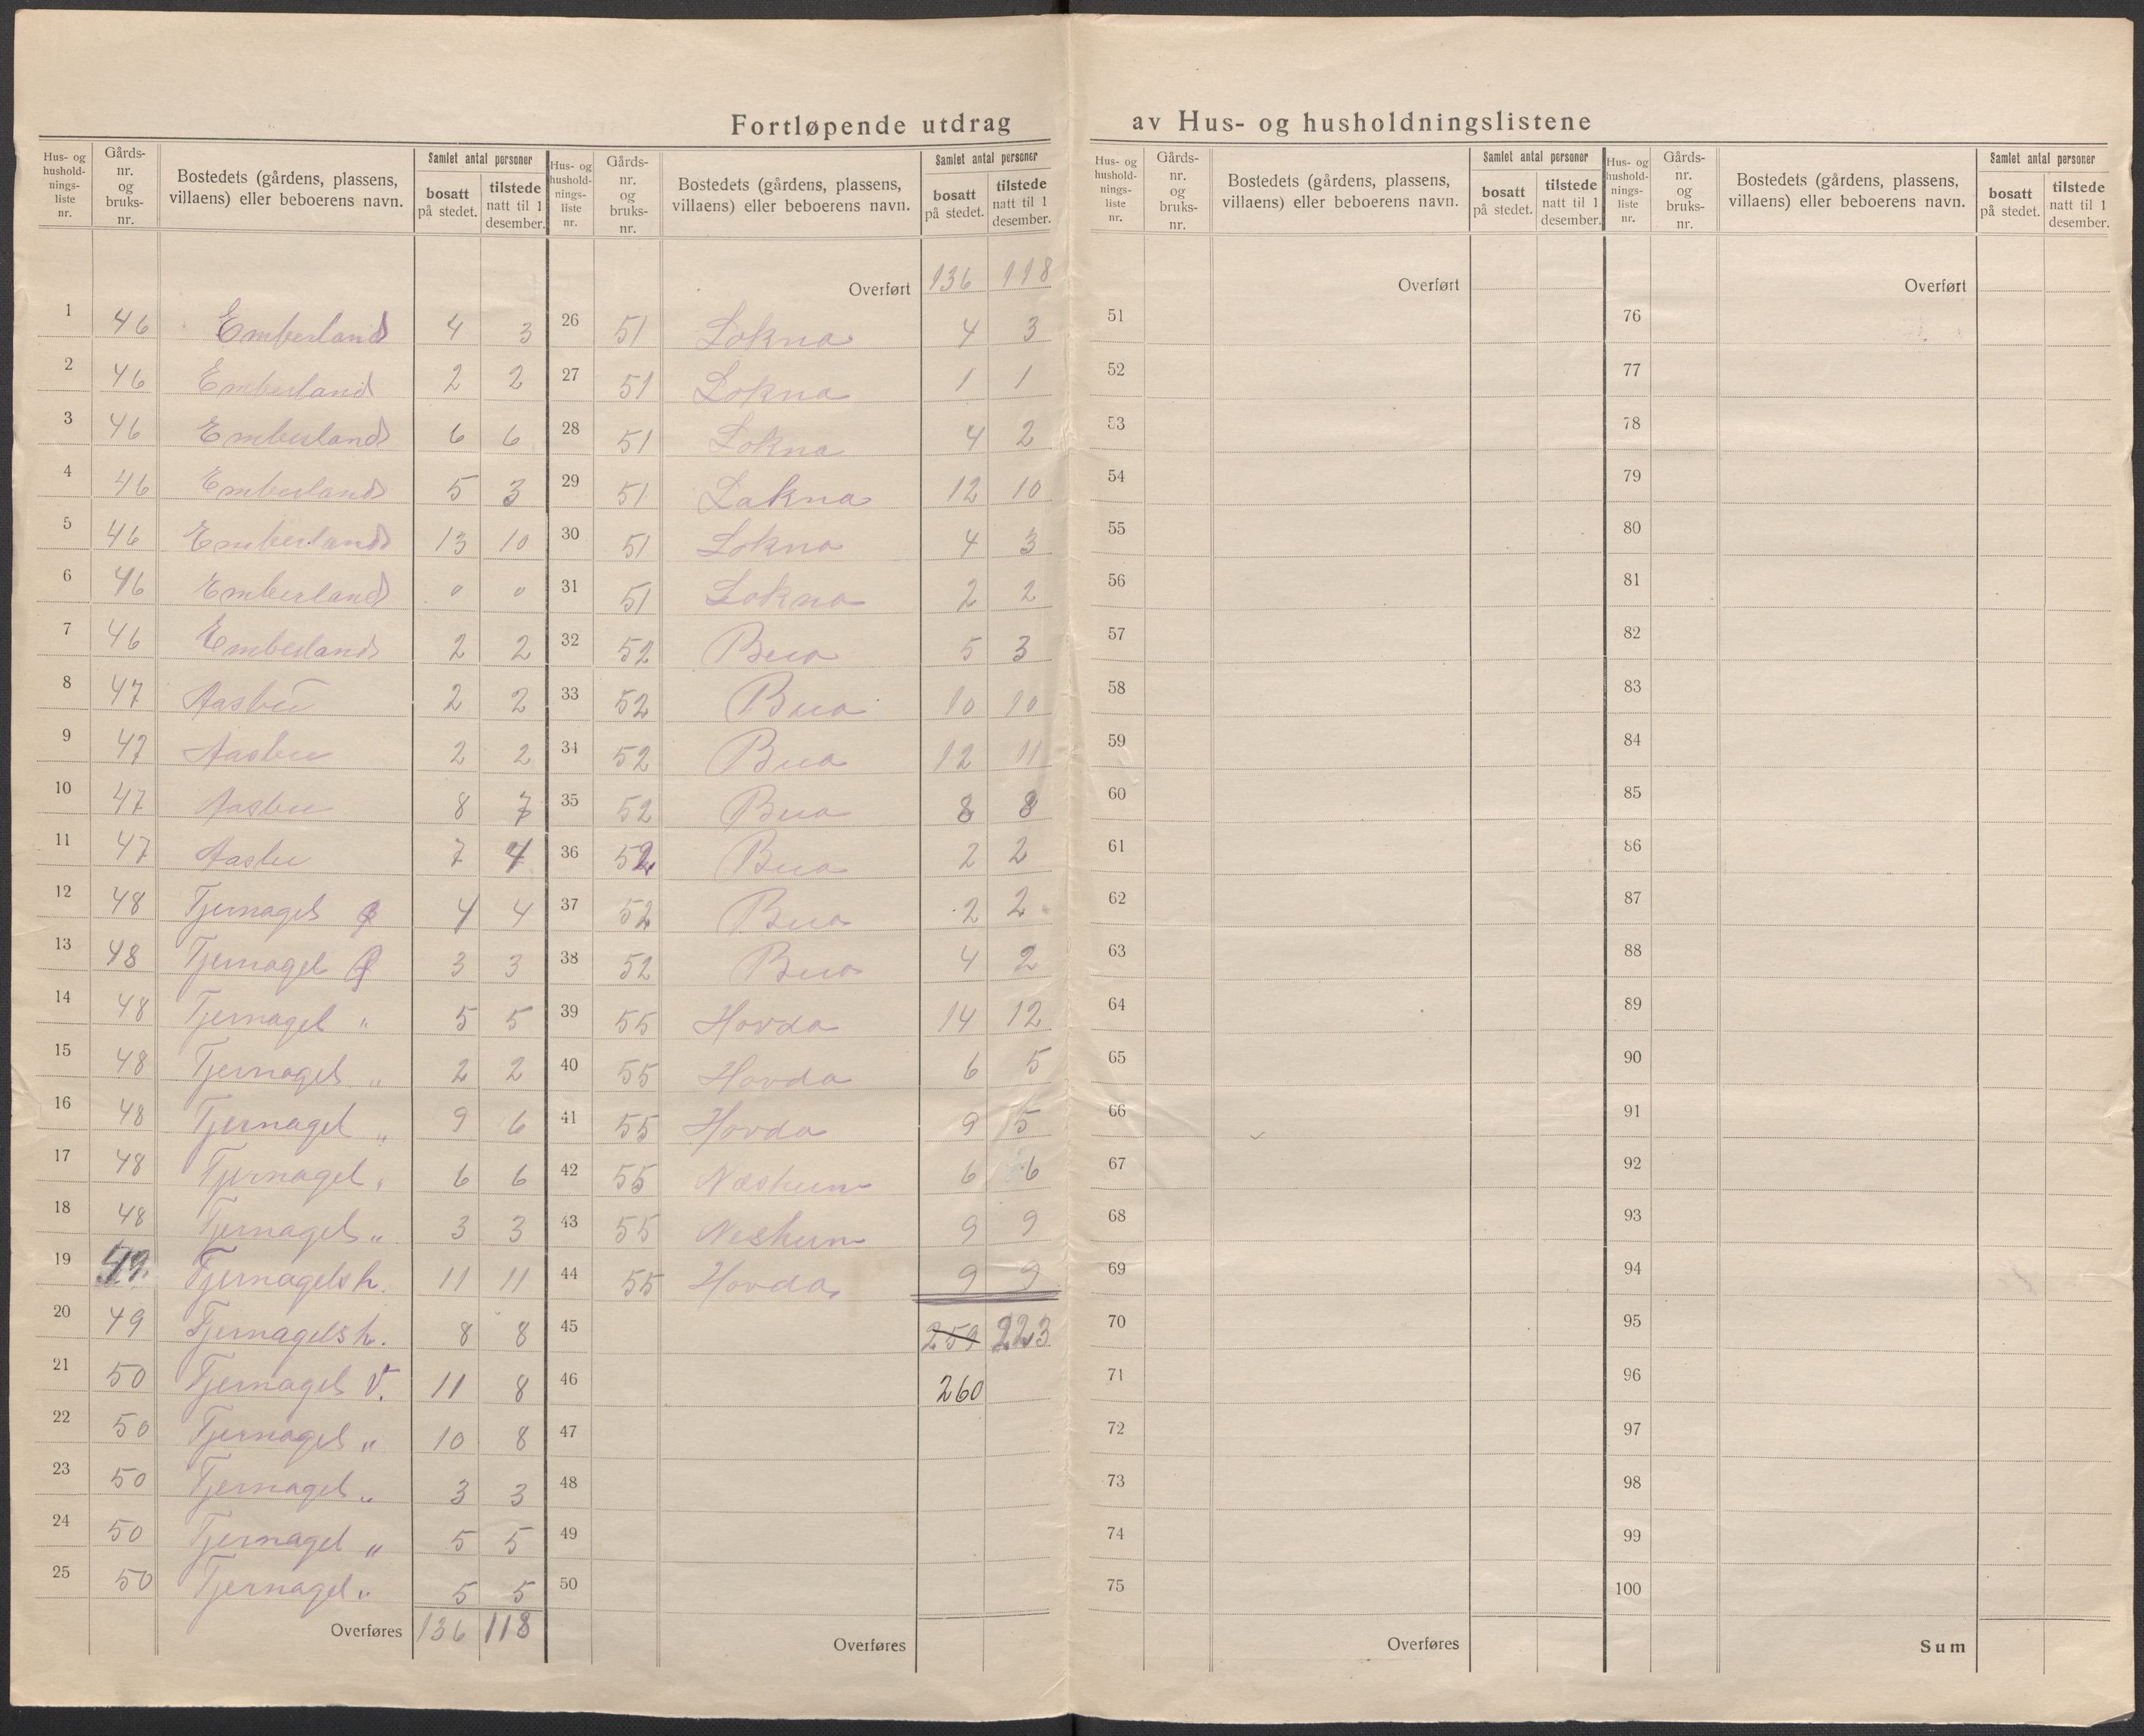 Fortløpende utdrag av Hus- og husholdningslistene
Hus- og hushold-nings-liste nr. | Gårds-nr. og bruks-nr. | Bostedets (gårdens, plassens, villaens) eller beboerens navn. | Samlet antal personer | bosatt på stedet. | tilstede natt til 1 desember.
1 46 Emberland 4 3
2 46 Emberland 2 2
3 46 Emberland 6 6
4 46 Emberland 5 3
5 46 Emberland 13 10
6 46 Emberland 0 0
7 46 Emberland 2 2
8 47 Aasbu 2 2
9 47 Aasbu 2 2
10 47 Aasbu 8 7
11 47 Aasbu 7 4
12 48 Tjernagel 4 4
13 48 Tjernagel 3 3
14 48 Tjernagel " 5 5
15 48 Tjernagel " 2 2
16 48 Tjernagel " 9 6
17 48 Tjernagel " 6 6
18 48 Tjernagel " 3 3
19 49. Tjernagelsh. 11 11
20 49 Tjernagelsh. 8 8
21 50 Tjernagel V. 11 8
22 50 Tjernagel " 10 8
23 50 Tjernagel " 3 3
24 50 Tjernagel " 5 5
25 50 Tjernagel " 5 5
Overføres 136 118
Hus- og hushold-nings-liste nr. | Gårds-nr. og bruks-nr. | Bostedets (gårdens, plassens, villaens) eller beboerens navn. | Samlet antal personer | bosatt på stedet. | tilstede natt til 1 desember.
Overført 136 118
26 51 Lokna 4 3
27 51 Lokna 1 1
28 51 Lokna 4 2
29 51 Lakna 12 10
30 51 Lokna 4 3
31 51 Lokna 2 2
32 52 Bua 5 3
33 52 Bua 10 10
34 52 Bua 12 11
35 52 Bua 8 8
36 52 Bua 2 2
37 52 Bua 2 2
38 52 Bua 4 2
39 55 Hovda 14 12
40 55 Hovda 6 5
41 55 Hovda 9 5
42 55 Næsheim 6 6
43 55 Nesheim 9 9
44 55 Hovda 9 9
45 259 223
46 260
47
48
49
50
Overføres
Hus- og hushold-nings-liste nr. | Gårds-nr. og bruks-nr. | Bostedets (gårdens, plassens, villaens) eller beboerens navn. | Samlet antal personer | bosatt på stedet. | tilstede natt til 1 desember.
Overført
51
52
53
54
55
56
57
58
59
60
61
62
63
64
65
66
67
68
69
70
71
72
73
74
75
Overføres
Hus- og hushold-nings-liste nr. | Gårds-nr. og bruks-nr. | Bostedets (gårdens, plassens, villaens) eller beboerens navn. | Samlet antal personer | bosatt på stedet. | tilstede natt til 1 desember.
Overført
76
77
78
79
80
81
82
83
84
85
86
87
88
89
90
91
92
93
94
95
96
97
98
99
100
Sum